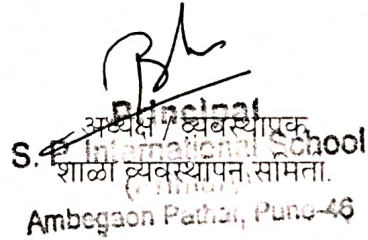 Principal
अध्यक्ष / व्यवस्थापक
S. P. International School
शाळा व्यवस्थापन समिती.
(Primary)
Ambegaon Pathar, Pune-46